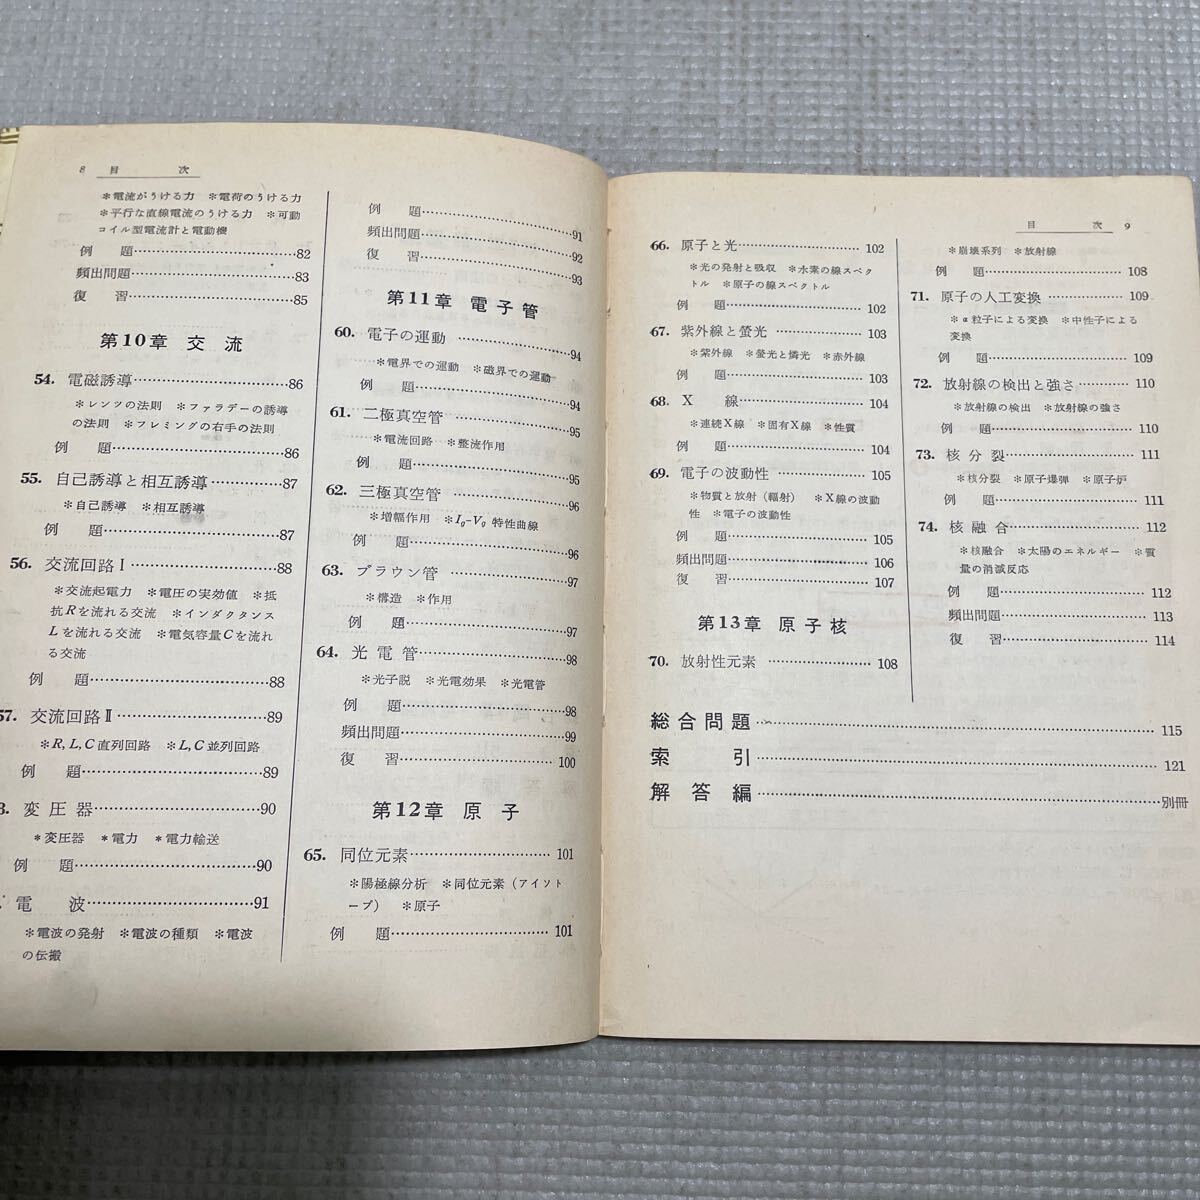 8 目 次
＊電流がうける力 ＊電荷のうける力
＊平行な直線電流のうける力 ＊可動
コイル型電流計と電動機
例 題……………82
頻出問題……………83
復 習……………85
第10章 交 流
54. 電磁誘導……………86
＊レンツの法則 ＊ファラデーの誘導
の法則 ＊フレミングの右手の法則
例 題……………86
55. 自己誘導と相互誘導……………87
＊自己誘導 ＊相互誘導
例 題……………87
56. 交流回路Ⅰ……………88
＊交流起電力 ＊電圧の実効値 ＊抵
抗Rを流れる交流 ＊インダクタンス
Lを流れる交流 ＊電気容量Cを流れ
る交流
例 題……………88
57. 交流回路Ⅱ……………89
＊R, L, C 直列回路 ＊L, C 並列回路
例 題……………89
8. 変圧器……………90
＊変圧器 ＊電力 ＊電力輸送
例 題……………90
. 電 波……………91
＊電波の発射 ＊電波の種類 ＊電波
の伝搬
例 題……………91
頻出問題……………92
復 習……………93
第11章 電子管
60. 電子の運動……………94
＊電界での運動 ＊磁界での運動
例 題……………94
61. 二極真空管……………95
＊電流回路 ＊整流作用
例 題……………95
62. 三極真空管……………96
＊増幅作用 ＊Ig-Vg 特性曲線
例 題……………96
63. ブラウン管……………97
＊構造 ＊作用
例 題……………97
64. 光電管……………98
＊光子説 ＊光電効果 ＊光電管
例 題……………98
頻出問題……………99
復 習……………100
第12章 原 子
65. 同位元素……………101
＊陽極線分析 ＊同位元素（アイソト
ープ） ＊原子
例 題……………101
目 次 9
66. 原子と光……………102
＊光の発射と吸収 ＊水素の線スペク
トル ＊原子の線スペクトル
例 題……………102
67. 紫外線と螢光……………103
＊紫外線 ＊螢光と燐光 ＊赤外線
例 題……………103
68. X 線……………104
＊連続X線 ＊固有X線 ＊性質
例 題……………104
69. 電子の波動性……………105
＊物質と放射（輻射） ＊X線の波動
性 ＊電子の波動性
例 題……………105
頻出問題……………106
復 習……………107
第13章 原子核
70. 放射性元素……………108
＊崩壊系列 ＊放射線
例 題……………108
71. 原子の人工変換……………109
＊α粒子による変換 ＊中性子による
変換
例 題……………109
72. 放射線の検出と強さ……………110
＊放射線の検出 ＊放射線の強さ
例 題……………110
73. 核分裂……………111
＊核分裂 ＊原子爆弾 ＊原子炉
例 題……………111
74. 核融合……………112
＊核融合 ＊太陽のエネルギー ＊質
量の消滅反応
例 題……………112
頻出問題……………113
復 習……………114
総合問題……………115
索 引……………121
解答編……………別冊